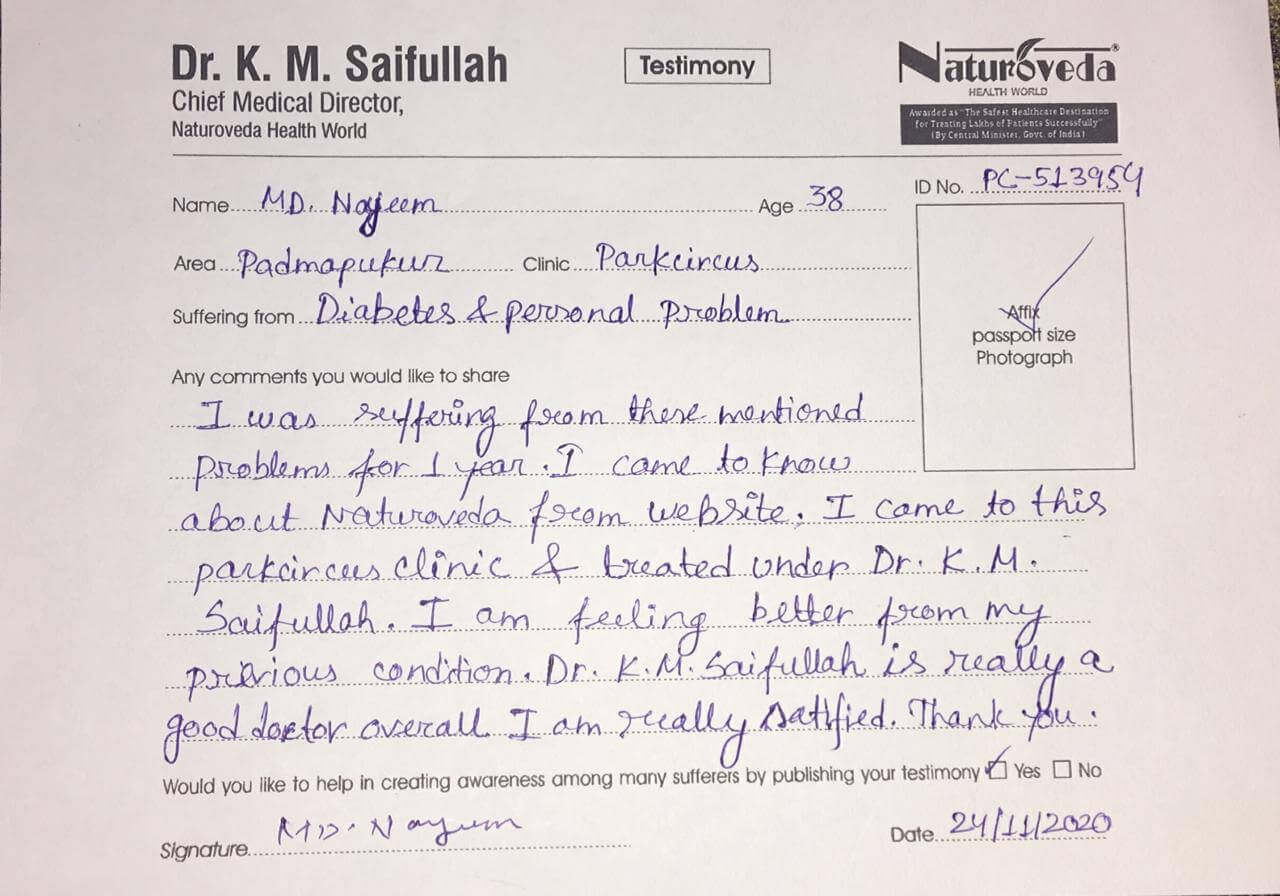 Dr. K. M. Saifullah
Chief Medical Director,
Naturoveda Health World
Testimony
Naturoveda®
HEALTH WORLD
Awarded as "The Safest Healthcare Destination
for Treating Lakhs of Patients Successfully"
(By Central Minister, Govt. of India)
Name MD. Nayeem Age 38 ID No. PC-513954
Area Padmapukur Clinic Parkcircus
Suffering from Diabetes & personal problem
Affix
passport size
Photograph
Any comments you would like to share
I was suffering from these mentioned
problems for 1 year. I came to know
about Naturoveda from website. I came to this
parkcircus clinic & treated under Dr. K. M.
Saifullah. I am feeling better from my
previous condition. Dr. K.M. Saifullah is really a
good doctor overall I am really satified. Thank you.
Would you like to help in creating awareness among many sufferers by publishing your testimony Yes No
Signature MD. Nayeem
Date 24/11/2020